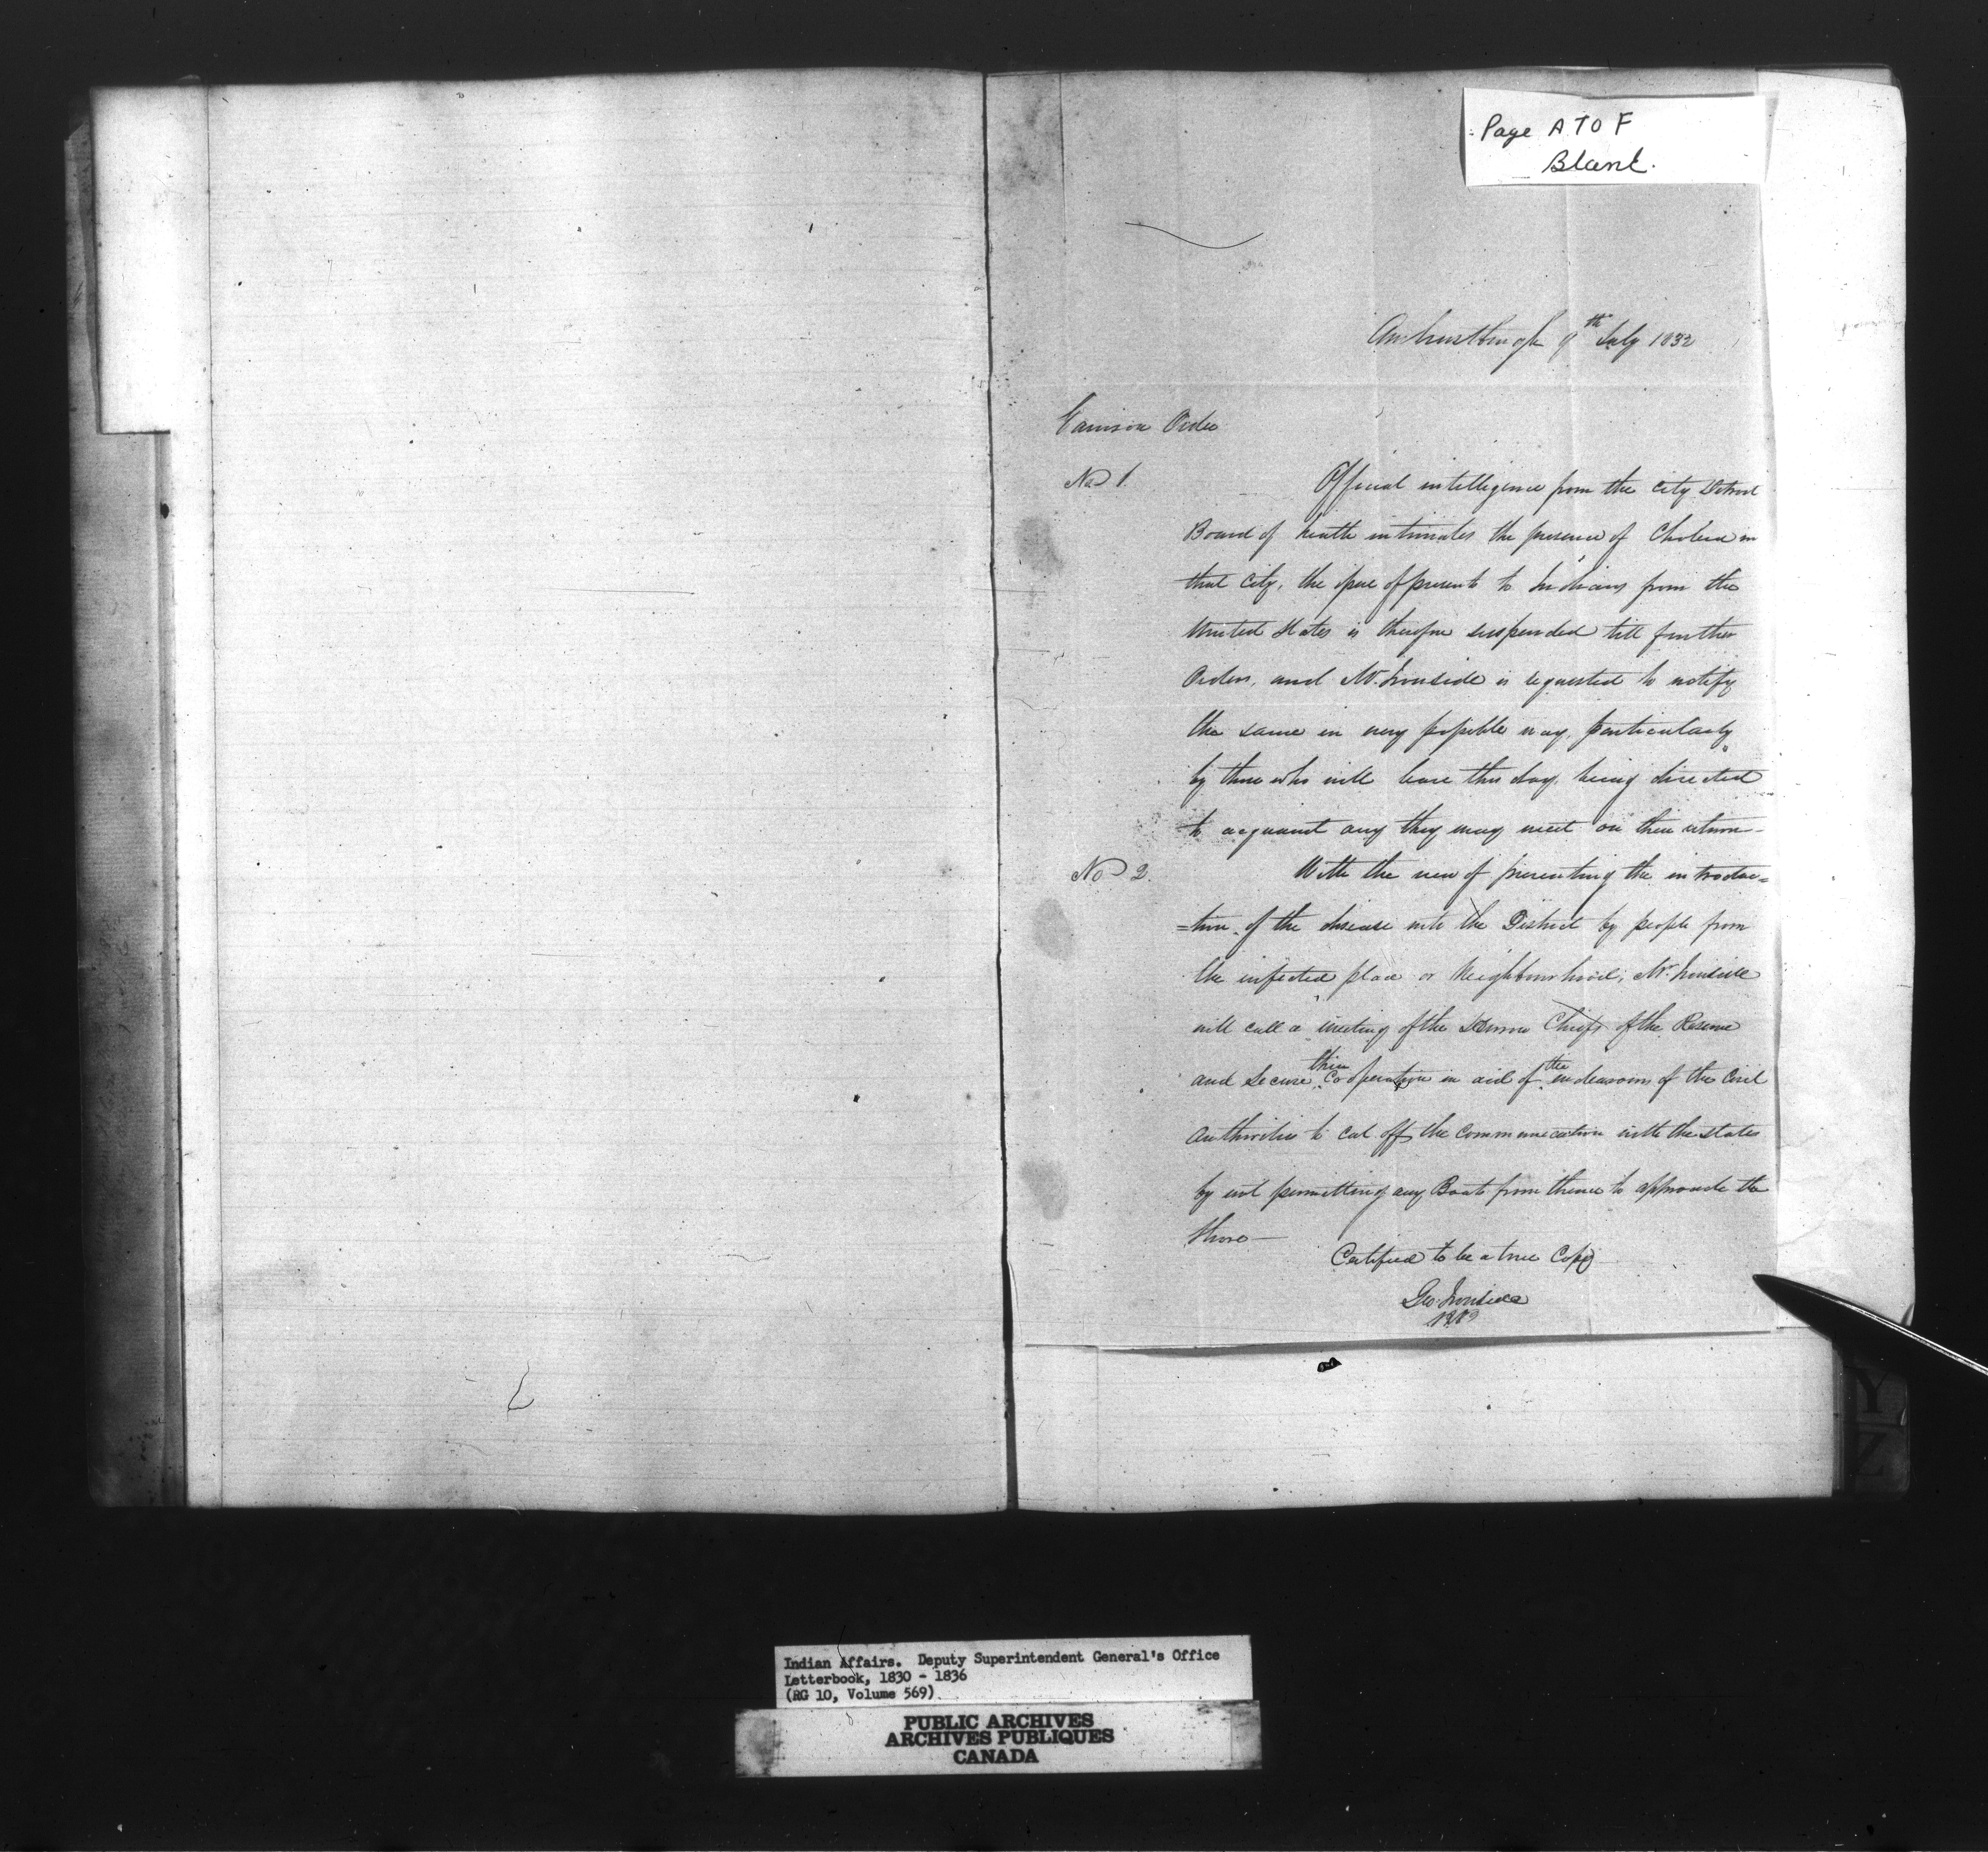 Page A TO F
Blank.
Amherstburgh 9th July 1832
Garrison Order
No 1.
Official intelligence from the City Detroit
Board of health intimates the presence of Cholera in
that City, the issue of presents to Indians from the
United States is therefore suspended till further
Orders, and Mr. Ironside is requested to notify
the same in every possible way, particularly
by those who will leave this day, being directed
to acquaint any they may meet on their return -
No 2.
With the view of preventing the introduc=
=tion of the disease into the District by people from
the infected place or Neighbourhood, Mr. Ironside
will call a meeting of the Huron Chiefs of the Reserve
and Secure their Cooperation in aid of the endeavours of the Civil
Authorities to cut off the Communication with the States
by not permitting any Boats from thence to approach the
Shore -
Certified to be a true Copy
Geo. Ironside
Y
Z
Indian Affairs. Deputy Superintendent General's Office
Letterbook, 1830 - 1836
(RG 10, Volume 569)
PUBLIC ARCHIVES
ARCHIVES PUBLIQUES
CANADA